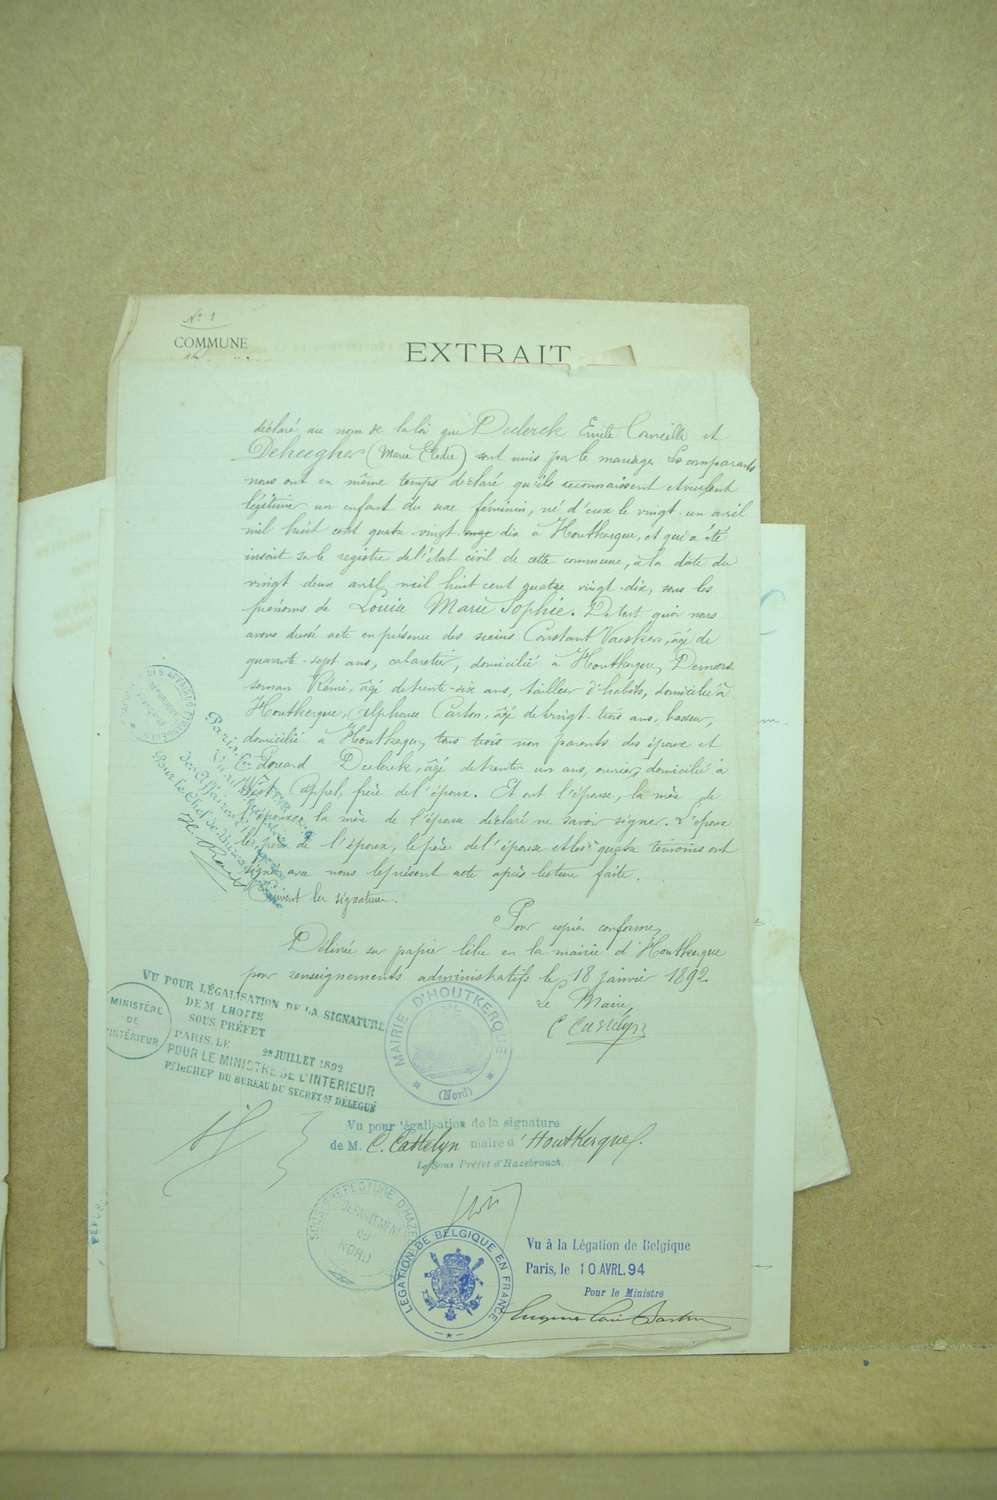 No 1
COMMUNE
EXTRAIT
déclaré au nom de la loi que Declerck Emile Corneille et
Deheegher (Marie Elodie) sont unis par le mariage. Les comparants
nous ont en même temps déclaré qu'ils reconnaissent et veulent
légitimer un enfant du sexe féminin, né d'eux le vingt un avril
mil huit cent quatre vingt dix à Houtkerque, et qui a été
inscrit sur le registre de l'état civil de cette commune, à la date du
vingt deux avril mil huit cent quatre vingt-dix, sous les
prénoms de Louise Marie Sophie. De tout quoi nous
avons dressé acte en présence des sieurs Constant, âgé de
quarante-sept ans, cabaretier, domicilié à Houtkerque,
Rémi, âgé de trente-six ans, tailleur d'habits, domicilié à
Houtkerque, Alphonse Carton, âgé de vingt-trois ans,
domicilié à Houtkerque, tous trois non parents des époux et
Edouard Declerck, âgé de trente un ans, ouvrier, domicilié à
Appel, frère de l'époux. Et ont l'épouse, la mère de
l'époux, la mère de l'épouse déclaré ne savoir signer. L'époux
le père de l'époux, le père de l'épouse et les quatre témoins ont
signé avec nous le présent acte après lecture faite.
Suivent les signatures.
Pour copie conforme,
Délivrée sur papier libre en la mairie d'Houtkerque
pour renseignements administratifs le 18 janvier 1892.
Le Maire,
C Castelyn
Paris
des Affaires
Pour le Chef de Bureau
VU POUR LÉGALISATION DE LA SIGNATURE
DE M LHOTTE
SOUS PRÉFET
PARIS, LE 28 JUILLET 1892
POUR LE MINISTRE DE L'INTÉRIEUR
P. LE CHEF DU BUREAU DU SECRÉT AT DÉLÉGUÉ
MINISTÈRE
DE
L'INTÉRIEUR
MAIRIE D'HOUTKERQUE
(Nord)
Vu pour légalisation de la signature
de M. C. Castelyn maire d'Houtkerque.
Le Sous Préfet d'Hazebrouck.
SOUS-PRÉFECTURE D'HAZE
DÉPARTEMENT
DU
NORD
LÉGATION DE BELGIQUE EN FRANCE
Vu à la Légation de Belgique
Paris, le 10 AVRL. 94
Pour le Ministre